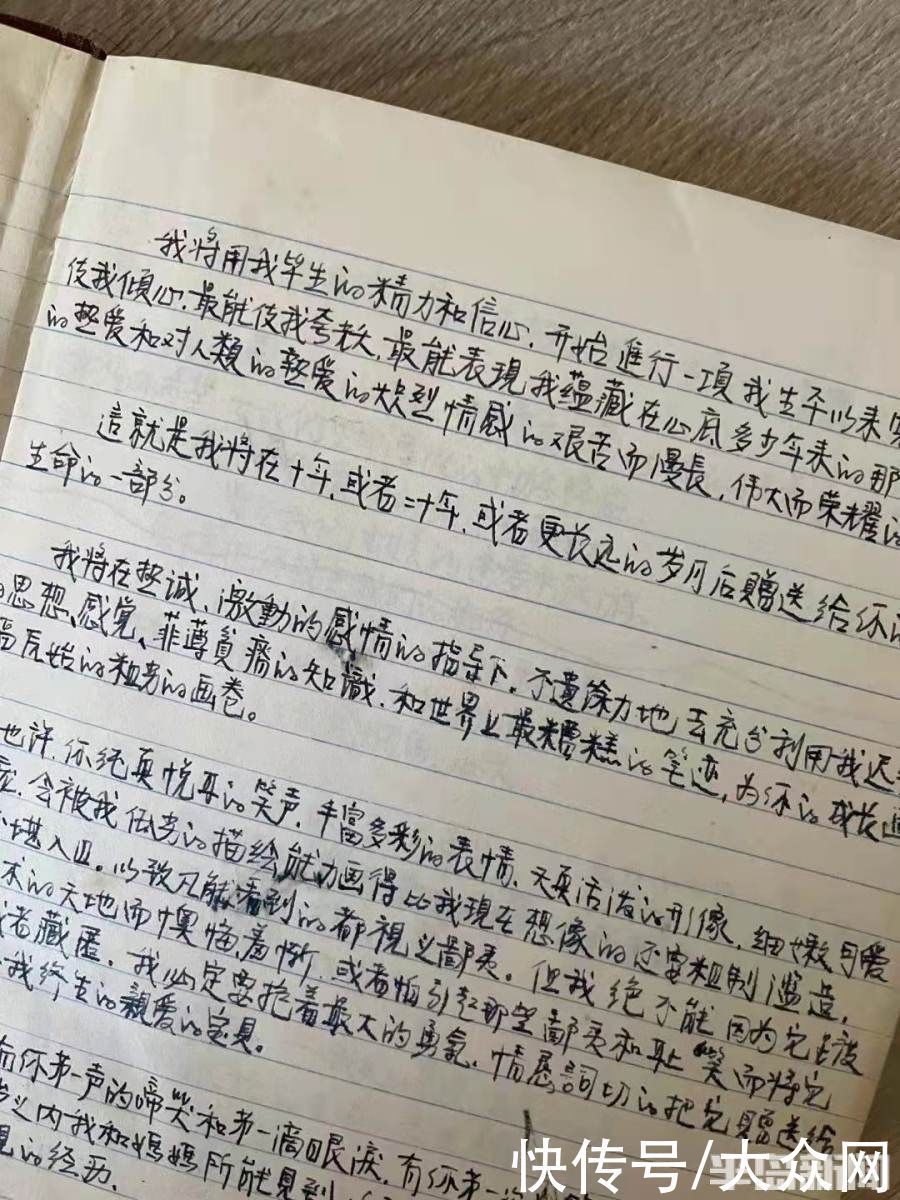 我将用我毕生的精力和信心,开始進行一項我生平以来
使我傾心,最能使我夸耀,最能表現我蕴藏在心底多少年来的那
的热爱和对人類的热爱的炽烈情感的艰苦而漫長,伟大而荣耀的
這就是我将在十年,或者二十年,或者更长远的岁月后赠送给你的
生命的一部分。
我将在热诚、激動的感情的指导下,不遺馀力地去充分利用我迟
思想、感覚、菲薄貧瘠的知識,和世界上最糟糕的笔迹,为你的成长
原始的粗劣的画卷。
也許,你纯真悦耳的笑声,丰富多彩的表情,天真活泼的形像,细嫩可爱
会被我低劣的描绘能力画得比我現在想像的还要粗制濫造,
堪入目。以致凡能看到的都視之鄙夷。但我绝不能因为它
的天地而懊悔、羞惭,或者怕引起那些鄙夷和耻笑而将它
者藏匿。我必定要抱着最大的勇氣,情意詞切的把它贈送给
我终生的親爱的宝貝。
有你第一声的啼哭和第一滴眼淚,有你第一次
内我和媽媽所能見到
的经历。
快传号/大众网
半岛新闻